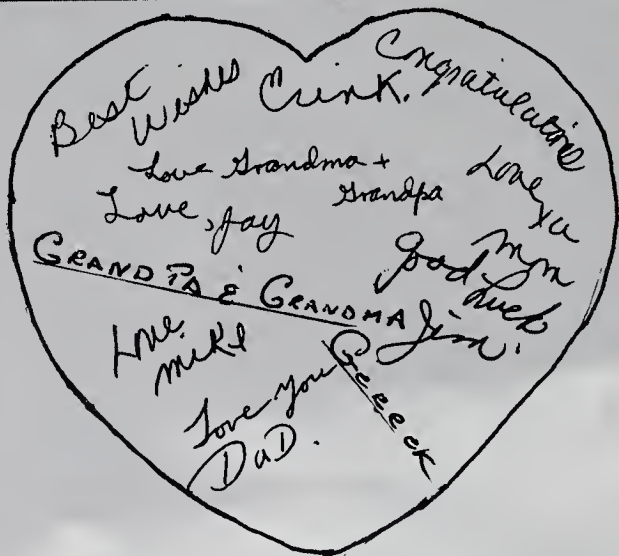 Best
Wishes
Crink.
Congratulations
Love Grandma +
Grandpa
Love, Jay
Love ya
Mom
GRANDPA & GRANDMA
Good
Luck
Jim.
Love
Mike
Love you
DaD.
Geeeek